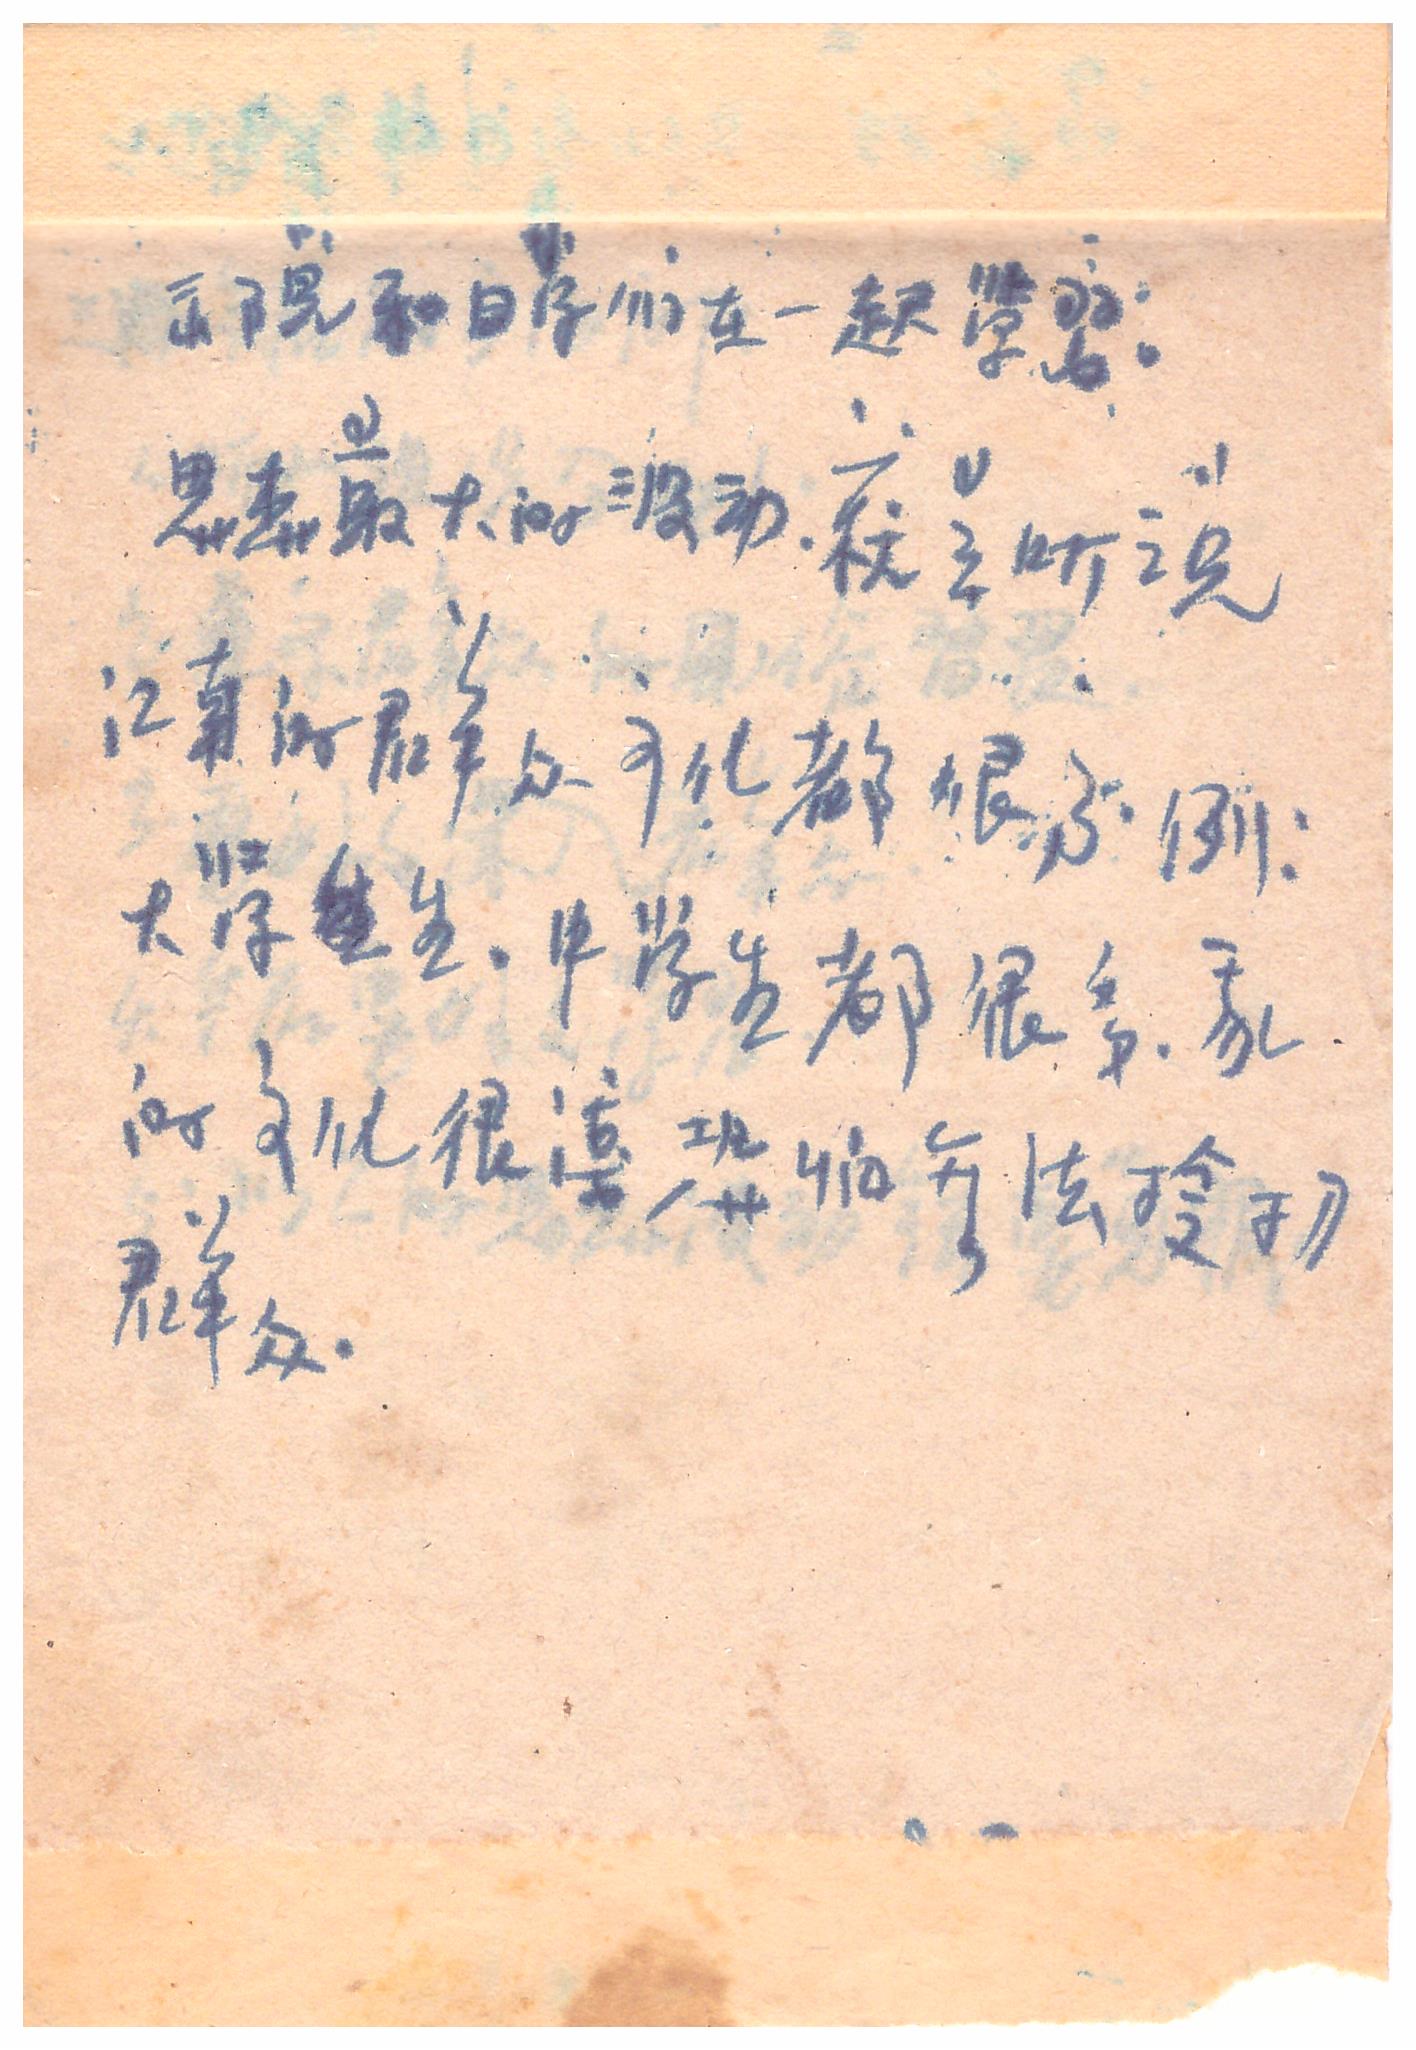 院和同学们在一起学习:
思想最大的波动.就是听说
江南的群众文化都很高.例:
大学生.中学生都很多.我
的文化很浅恐怕无法接到
群众.